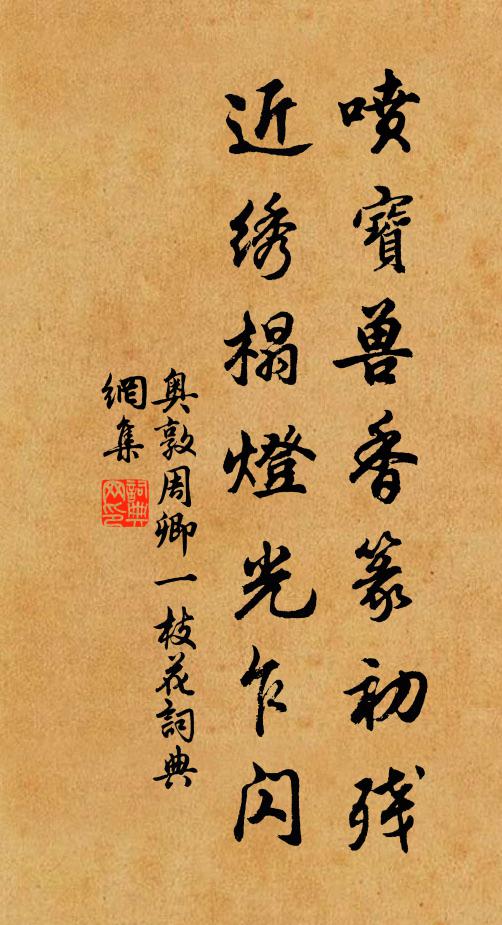 喷寶兽香篆初残
近绣榻燈光乍闪
奥敦周卿一枝花詞典
網集
詞典網印